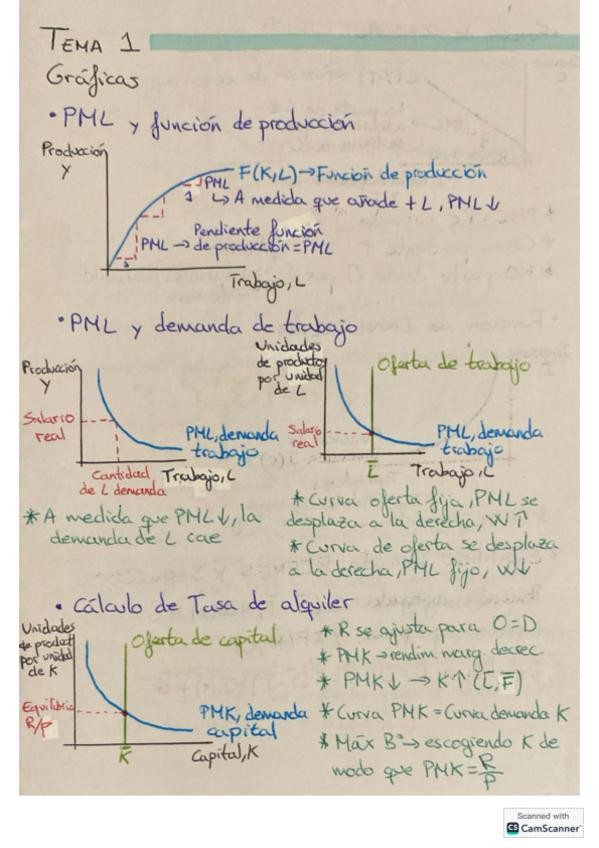 TEMA 1
Gráficas
• PML y función de producción
Producción
Y
F(K,L)→Función de producción
PML
1
↳ A medida que añade + L, PML↓
Pendiente función
PML → de producción = PML
1
Trabajo, L
• PML y demanda de trabajo
Producción
Y
Salario
real
PML, demanda
trabajo
Cantidad
de L demanda
Trabajo, L
* A medida que PML↓, la
demanda de L cae
Unidades
de producto
por unidad
de L
Oferta de trabajo
Salario
real
PML, demanda
trabajo
L̄
Trabajo, L
* Curva oferta fija, PML se
desplaza a la derecha, W↑
* Curva de oferta se desplaza
a la derecha, PML fijo, W↓
• Cálculo de Tasa de alquiler
Unidades
de product
por unidad
de K
Oferta de capital
Equilibrio
R/P
PMK, demanda
capital
K̄
Capital, K
* R se ajusta para O=D
* PMK → rendim. marg. decrec.
* PMK↓ → K↑ (L̄, F̄)
* Curva PMK = Curva demanda K
* Máx Bº → escogiendo K de
modo que PMK = R/P
Scanned with
CS CamScanner